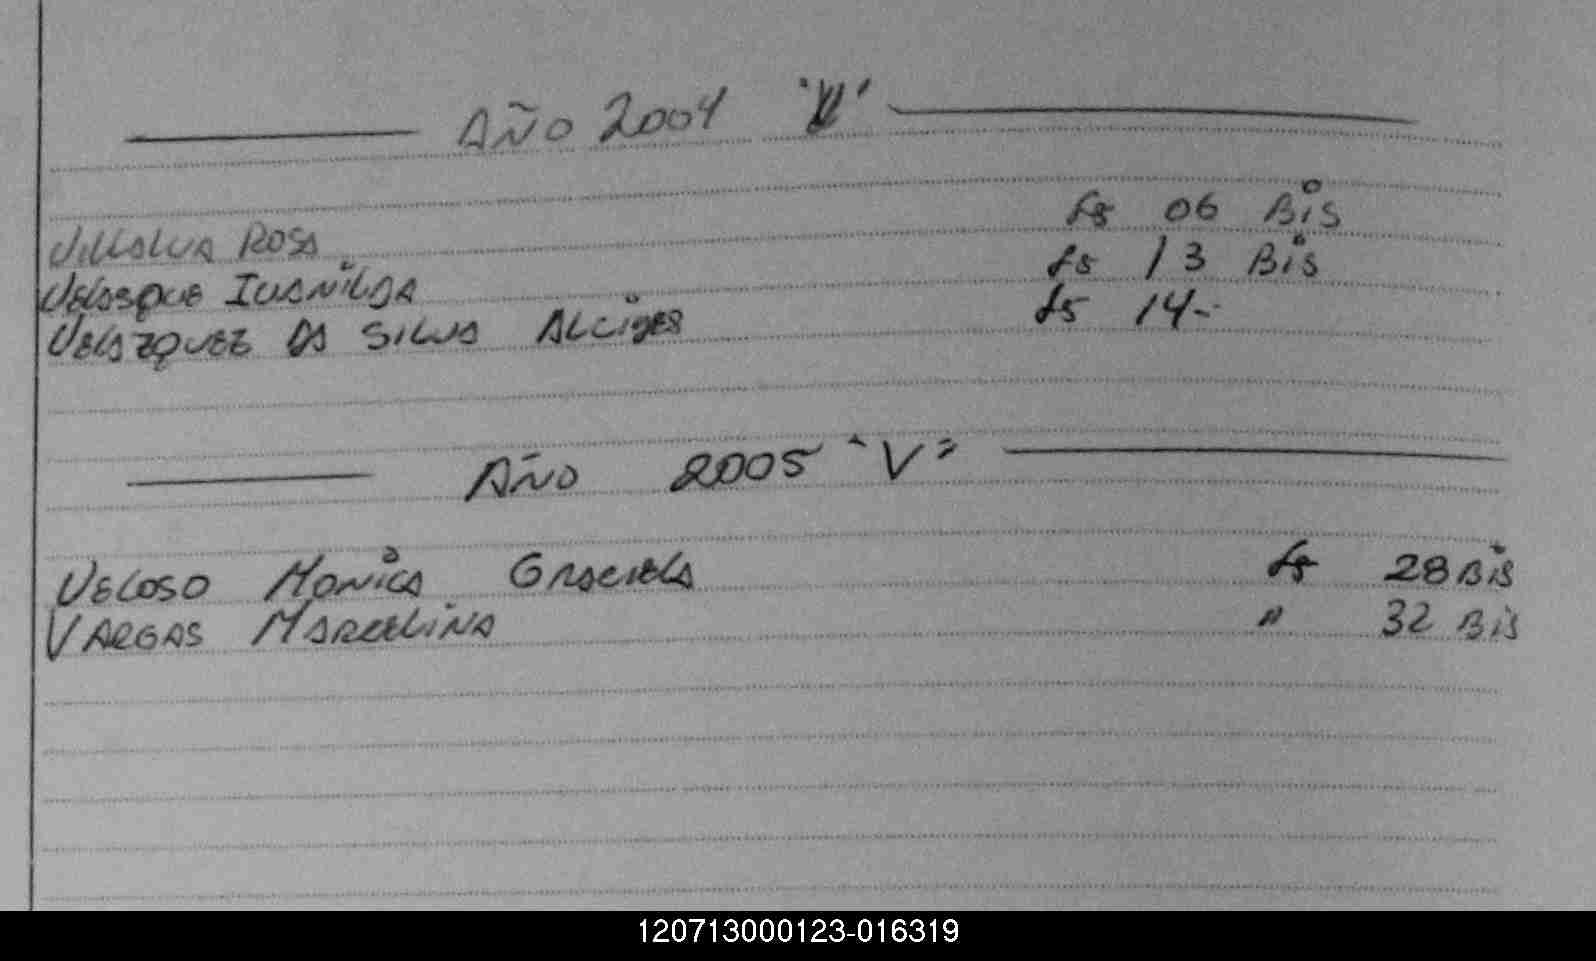 Año 2004 "V"
Villalva Rosa fs 06 Bis
Velasque Ivanilda fs 13 Bis
Velazquez Da Silva Alcides fs 14-
Año 2005 "V"
Veloso Monica Graciela fs 28 Bis
Vargas Marcelina " 32 Bis
120713000123-016319